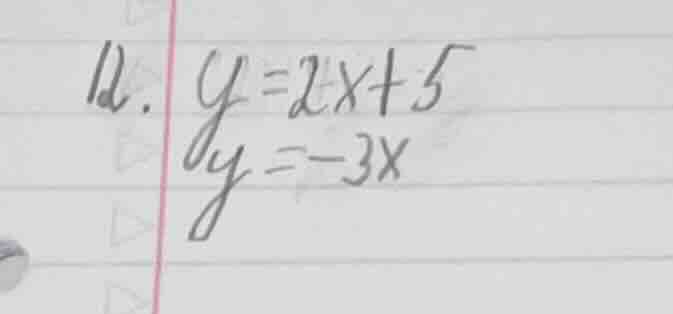 12. y=2x+5
y=-3x